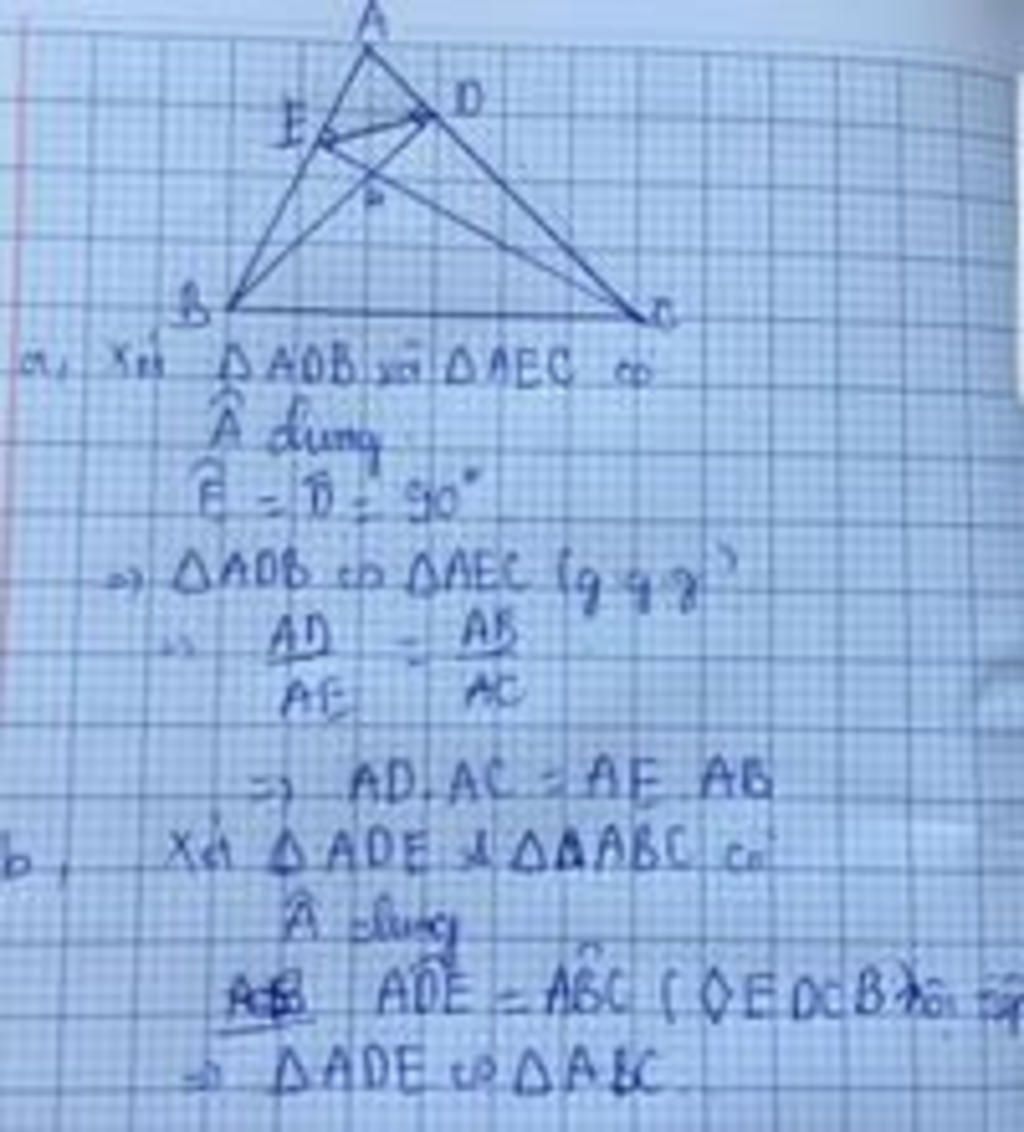 A
E D
B C
a, Xét ΔADB với ΔAEC có
Â chung
Ê = D̂ = 90°
=> ΔADB ∽ ΔAEC (g.g.g)
=> AD/AE = AB/AC
=> AD.AC = AE AB
b, Xét ΔADE & ΔABC có
Â chung
ADE = ABC (◊EDCB nội
=> ΔADE ∽ ΔABC